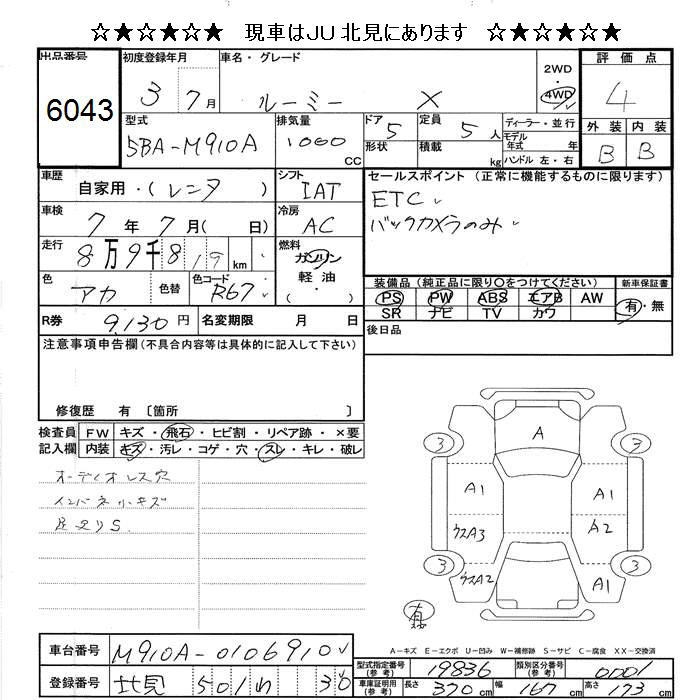 ☆★☆★☆★ 現車はJU北見にあります ☆★☆★☆★
出品番号 6043
初度登録年月 3 7月
車名・グレード ルーミー X
2WD・4WD
評価点 4
型式 5BA-M910A
排気量 1000 CC
ドア形状 5
定員 5人
積載 kg
ディーラー・並行
モデル年式 年
ハンドル 左・右
外装 B
内装 B
車歴 自家用・(レンタ)
シフト IAT
セールスポイント(正常に機能するものに限ります)
ETC
バックカメラのみ
車検 7年7月( 日)
冷房 AC
走行 8万9千819km
燃料 ガソリン 軽油
色 アカ
色替
色コード R67
装備品(純正品に限り〇をつけてください)
PS PW ABS エアB AW
SR ナビ TV カワ
新車保証書 有・無
R券 9,130円
名変期限 月 日
後日品
注意事項申告欄(不具合内容等は具体的に記入して下さい)
修復歴 有 〔箇所 〕
検査員記入欄
FW キズ・飛石・ヒビ割・リペア跡・×要
内装 キズ・汚レ・コゲ・穴・スレ・キレ・破レ
オーディオレス穴
インパネ小キズ
足廻りS
A
3 3
A1 A1
ウスA3 A2
3 3
ウスA2 A1
A-キズ E-エクボ U-凹み W-補修跡 S-サビ C-腐食 XX-交換済
車台番号 M910A-0106910
型式指定番号(参考) 19836
類別区分番号(参考) 0001
登録番号 北見 501 わ 30
車庫証明用(参考) 長さ 370cm 幅 167cm 高さ 173cm